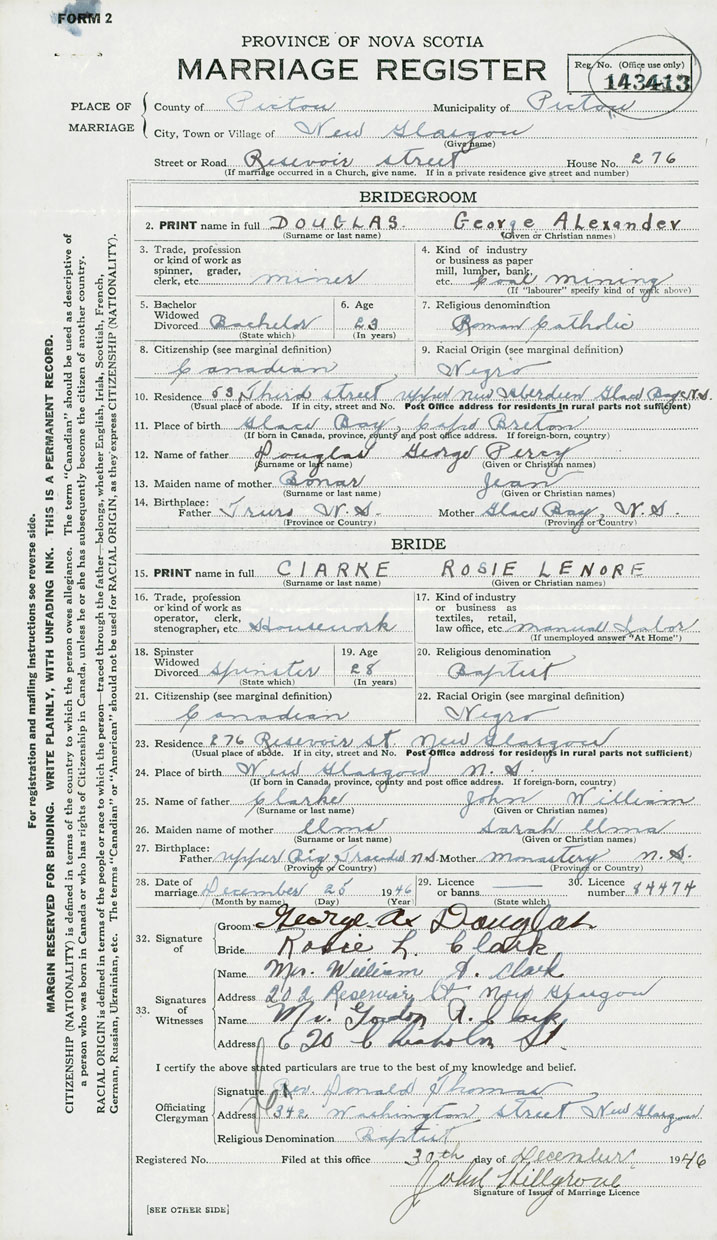 FORM 2
PROVINCE OF NOVA SCOTIA
MARRIAGE REGISTER
Reg. No. (Office use only)
143413
PLACE OF MARRIAGE
County of Pictou Municipality of Pictou
City, Town or Village of New Glasgow
(Give name)
Street or Road Resevoir street House No. 276
(If marriage occurred in a Church, give name. If in a private residence give street and number)
BRIDEGROOM
2. PRINT name in full DOUGLAS. George Alexander
(Surname or last name) (Given or Christian names)
3. Trade, profession or kind of work as spinner, grader, clerk, etc. miner
4. Kind of industry or business as paper mill, lumber, bank, etc. Coal mining
(If "labourer" specify kind of work above)
5. Bachelor Widowed Divorced Bachelor
(State which)
6. Age 23
(In years)
7. Religious denomination
Roman Catholic
8. Citizenship (see marginal definition)
Canadian
9. Racial Origin (see marginal definition)
Negro
10. Residence 53 Third street upper New Aberdeen Glace Bay N.S.
(Usual place of abode. If in city, street and No. Post Office address for residents in rural parts not sufficient)
11. Place of birth Glace Bay, Cape Breton
(If born in Canada, province, county and post office address. If foreign-born, country)
12. Name of father Douglas George Percy
(Surname or last name) (Given or Christian names)
13. Maiden name of mother Bonar Jean
(Surname or last name) (Given or Christian names)
14. Birthplace: Father Truro N.S. Mother Glace Bay, N.S.
(Province or Country) (Province or Country)
BRIDE
15. PRINT name in full ClARKE ROSIE LENORE
(Surname or last name) (Given or Christian names)
16. Trade, profession or kind of work as operator, clerk, stenographer, etc. Housework
17. Kind of industry or business as textiles, retail, law office, etc. manual Labor
(If unemployed answer "At Home")
18. Spinster Widowed Divorced Spinster
(State which)
19. Age 28
(In years)
20. Religious denomination
Baptist
21. Citizenship (see marginal definition)
Canadian
22. Racial Origin (see marginal definition)
Negro
23. Residence 276 Resevoir st. New Glasgow
(Usual place of abode. If in city, street and No. Post Office address for residents in rural parts not sufficient)
24. Place of birth New Glasgow N.S.
(If born in Canada, province, county and post office address. If foreign-born, country)
25. Name of father Clarke John William
(Surname or last name) (Given or Christian names)
26. Maiden name of mother Elms Sarah
(Surname or last name) (Given or Christian names)
27. Birthplace: Father upper Big Tracadie N.S. Mother Monastery N.S.
(Province or Country) (Province or Country)
28. Date of marriage December 25 1946
(Month by name) (Day) (Year)
29. Licence or banns
(State which)
30. Licence number 84474
32. Signature of
Groom George A. Douglas
Bride Rosie L. Clark
33. Signatures of Witnesses
Name Mrs. William A. Clark
Address 202 Reservoir St New Glasgow
Name Mr. Gordon R. Clark
Address 620 Chisholm St.
I certify the above stated particulars are true to the best of my knowledge and belief.
Officiating Clergyman
Signature Rev. Donald Thomas
Address 342 Washington Street New Glasgow
Religious Denomination Baptist
Registered No. Filed at this office 30th day of December 1946
John Hillgrove
Signature of Issuer of Marriage Licence
[SEE OTHER SIDE]
For registration and mailing instructions see reverse side.
MARGIN RESERVED FOR BINDING. WRITE PLAINLY, WITH UNFADING INK. THIS IS A PERMANENT RECORD.
CITIZENSHIP (NATIONALITY) is defined in terms of the country to which the person owes allegiance. The term "Canadian" should be used as descriptive of
a person who was born in Canada or who has rights of Citizenship in Canada, unless he or she has subsequently become the citizen of another country.
RACIAL ORIGIN is defined in terms of the people or race to which the person—traced through the father—belongs, whether English, Irish, Scottish, French,
German, Russian, Ukrainian, etc. The terms "Canadian" or "American" should not be used for RACIAL ORIGIN, as they express CITIZENSHIP (NATIONALITY).